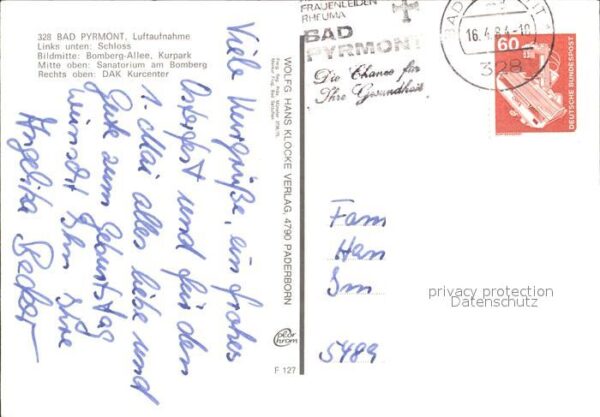 328 BAD PYRMONT, Luftaufnahme
Links unten: Schloss
Bildmitte: Bomberg-Allee, Kurpark
Mitte oben: Sanatorium am Bomberg
Rechts oben: DAK Kurcenter
Viele Kurgrüße, ein frohes
Osterfest und für den
1. Mai alles liebe und
Gute zum Geburtstag
wünscht Ihn Ihre
Angelika Becker
WOLFG. HANS KLOCKE VERLAG, 4790 PADERBORN
color
chrom
F 127
FRAUENLEIDEN
RHEUMA
BAD
PYRMONT
Die Chance für
Ihre Gesundheit
BAD
16.4.84-10
328
60
DEUTSCHE BUNDESPOST
Fam
Han
Im
5489
privacy protection
Datenschutz